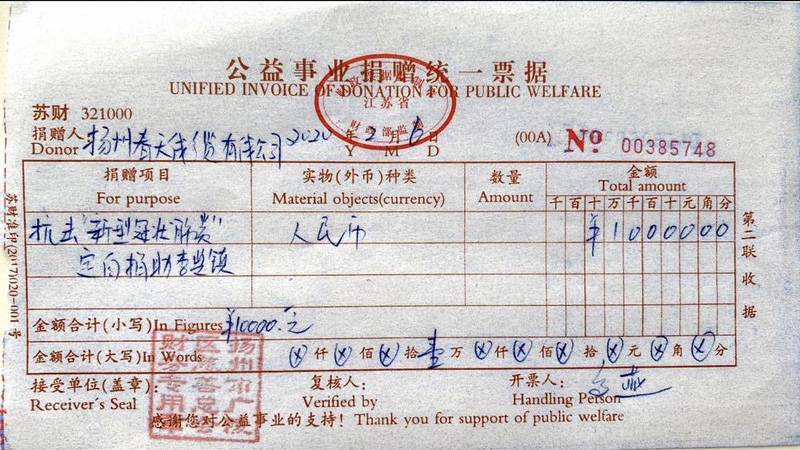 公益事业捐赠统一票据
UNIFIED INVOICE OF DONATION FOR PUBLIC WELFARE
江苏省
财政部监制
苏财 321000
捐赠人 扬州春天线缆有限公司 2020年2月6日 (00A) No 00385748
Donor Y M D
捐赠项目 实物(外币)种类 数量 金额
For purpose Material objects(currency) Amount Total amount
千百十万千百十元角分
抗击"新型冠状肺炎" 人民币 ¥1000000
定向捐助李典镇
金额合计(小写)In Figures ¥10000.元
金额合计(大写)In Words ⓧ仟ⓧ佰ⓧ拾壹万ⓧ仟ⓧ佰ⓧ拾ⓧ元ⓧ角ⓧ分
接受单位(盖章): 复核人: 开票人:
Receiver's Seal Verified by Handling Person
感谢您对公益事业的支持! Thank you for support of public welfare
第二联 收据
苏财准印(2017)020-001号
扬州市广
区慈善总
财务专用